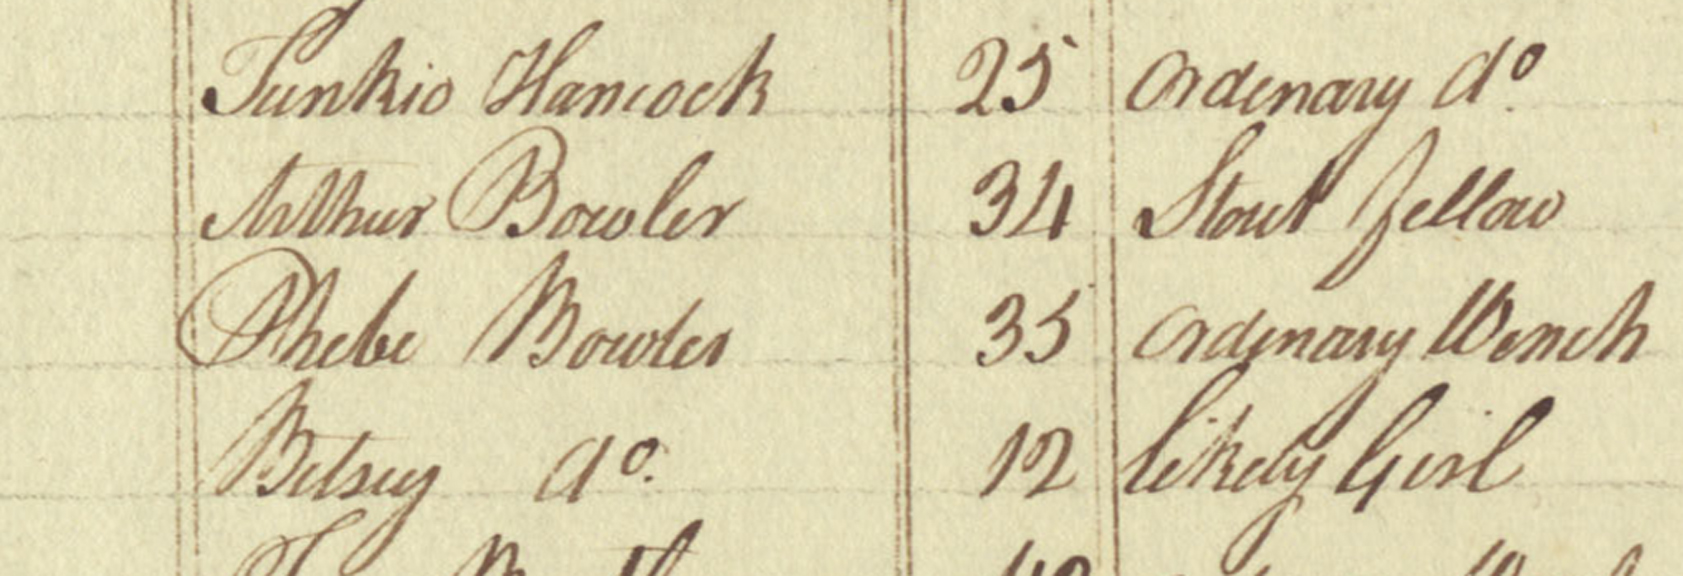 Junkio Hancock 25 Ordenary do.
Arthur Bowler 34 Stout fellow
Phebe Bowler 35 Ordenary Wench
Betsey do. 12 likely Girl